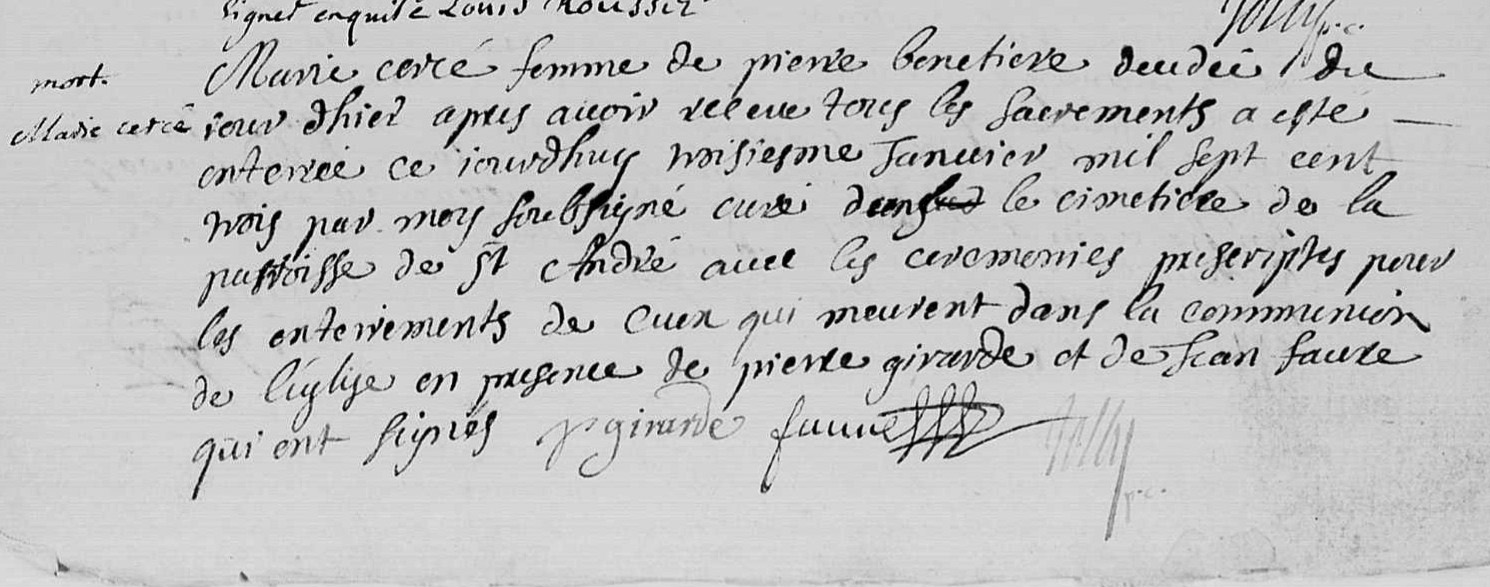 signer enquité Louis Roussir
Jolly p.c.
mort.
Marie cercé
Marie cercé femme de pierre benetiere decedeé du
iour dhier apres auoir receue tous les sacrements a esté
enterreé ce iourdhuy troisiesme Januier mil sept cent
trois par moy soubsigné curé dans le cimetiere de la
parroisse de St André auec les ceremonies prescriptes pour
les enterrements de ceux qui meurent dans la communion
de l'église en presence de pierre girarde et de Jean faure
qui ont signés p girarde faure Jolly
p.c.